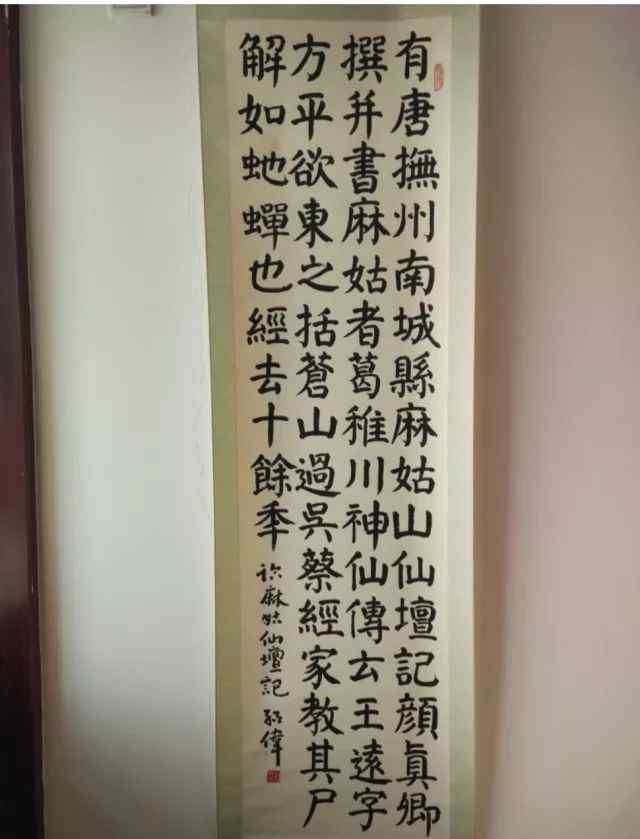 有唐撫州南城縣麻姑山仙壇記顏真卿
撰并書麻姑者葛稚川神仙傳云王遠字
方平欲東之括蒼山過吳蔡經家教其尸
解如虵蟬也經去十餘年
麻姑仙壇記
偉